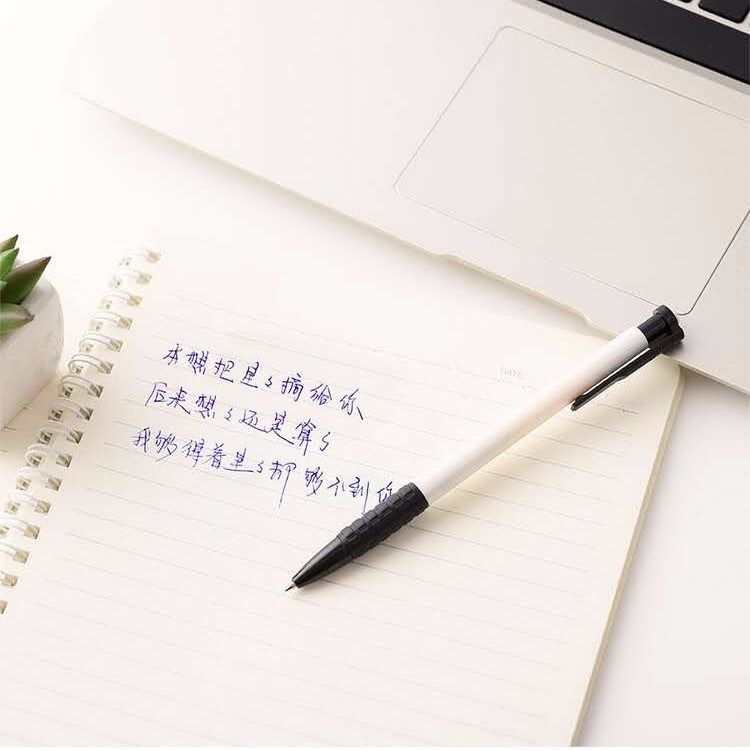 DATE
本想把星星摘给你
后来想想还是算了
我够得着星星却够不到你